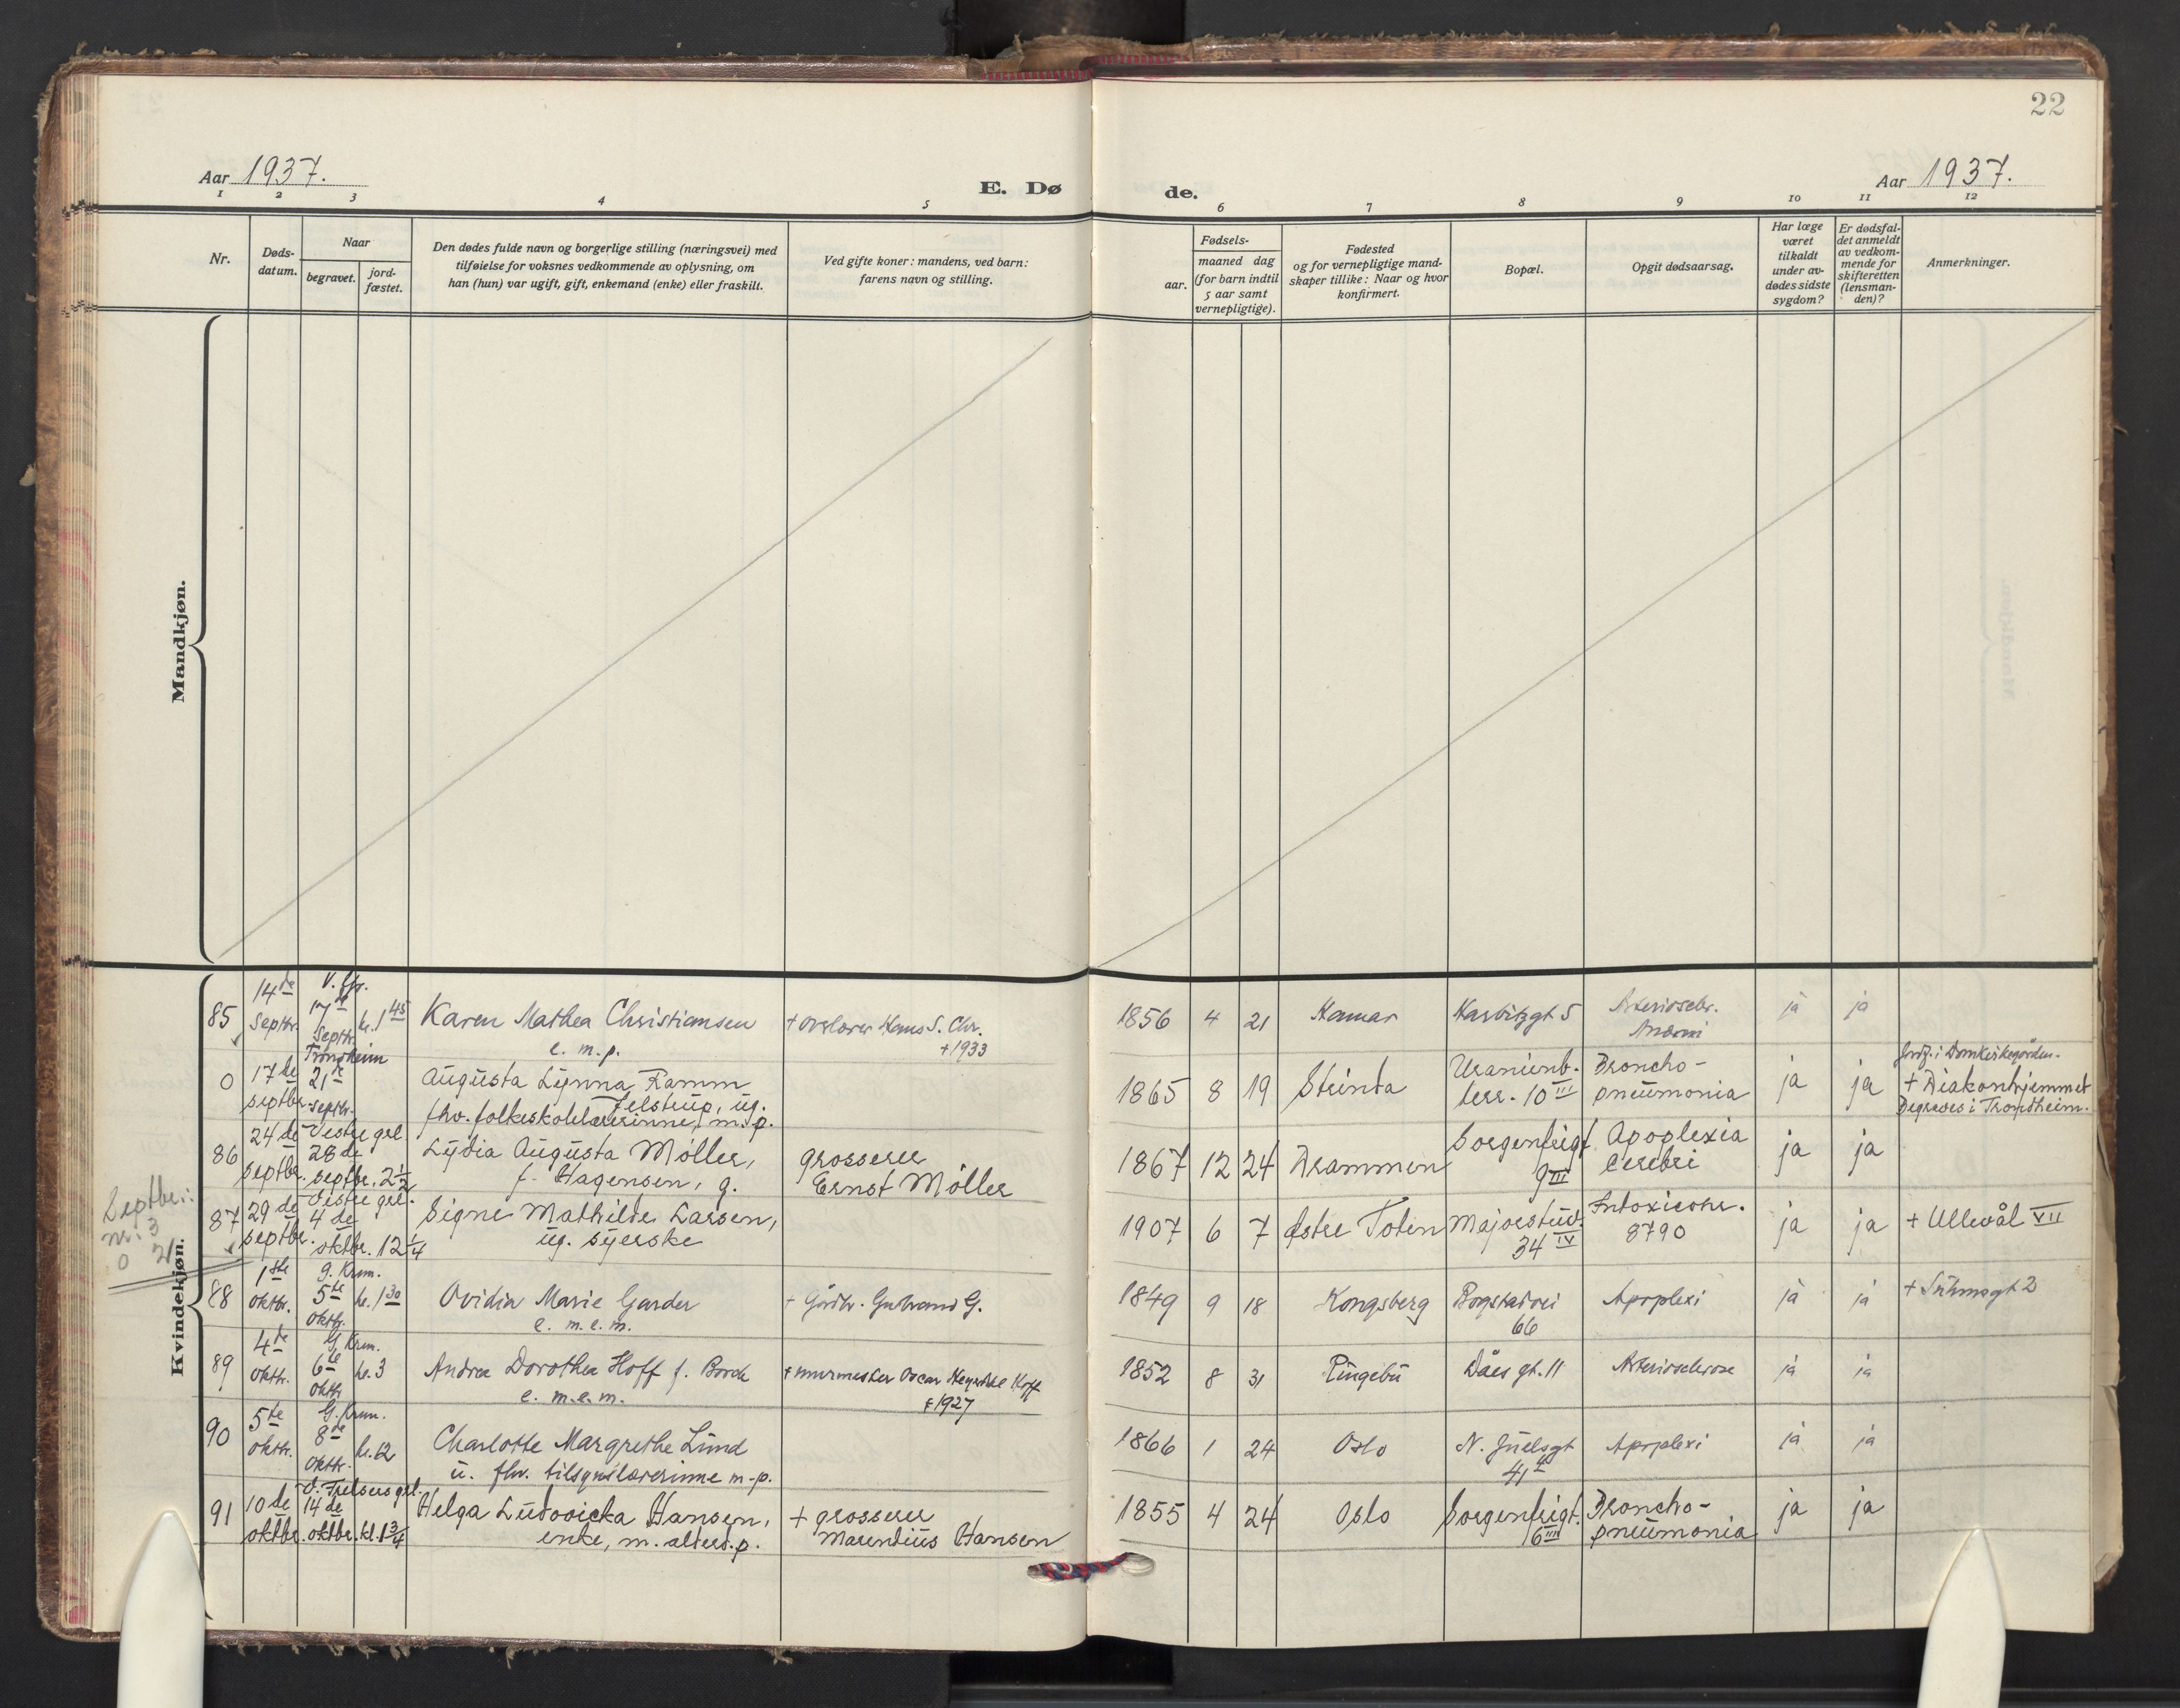 22
Aar 1937.
E. Dø
de.
Aar 1937.
1 2 3 4 5 6 7 8 9 10 11 12
Nr.
Døds-
datum.
Naar
begravet.
jord-
fæstet.
Den dødes fulde navn og borgerlige stilling (næringsvei) med
tilføielse for voksnes vedkommende av oplysning, om
han (hun) var ugift, gift, enkemand (enke) eller fraskilt.
Ved gifte koner: mandens, ved barn:
farens navn og stilling.
Fødsels-
aar.
maaned dag
(for barn indtil
5 aar samt
vernepligtige).
Fødested
og for vernepligtige mand-
skaper tillike: Naar og hvor
konfirmert.
Bopæl.
Opgit dødsaarsag.
Har læge
været
tilkaldt
under av-
dødes sidste
sygdom?
Er dødsfal-
det anmeldt
av vedkom-
mende for
skifteretten
(lensman-
den)?
Anmerkninger.
Mandkjøn.
Kvindekjøn.
Septbr.:
nr: 3
0 21
85
14de
Septbr.
17de
Septbr.
kl. 1 45
Karen Mathea Christiansen
e. m. p.
+ overlærer Hans S. Chr.
+ 1933
1856 4 21
Hamar
Harbitzgt 5
ja
ja
0
17de
septbr.
Trondheim
21de
septbr.
Augusta Lynna Ramm
Jelstrup, ug.
fhv. folkeskolelærerinne, m. p.
1865 8 19
Strinda
Uranienb.
terr. 10 III
Broncho-
pneumonia
ja
ja
Jordf. i Domkirkegården.
+ Diakonhjemmet
Begraves i Trondheim.
86
24de
septbr.
Vestre grl.
28de
septbr. 2 1/2
Lydia Augusta Møller,
f. Hagensen, g.
grosserer
Ernst Møller
1867 12 24
Drammen
Sorgenfrigt
9 III
Apoplexia
cerebri
ja
ja
87
29de
septbr.
Vestre grl.
4de
oktbr. 12 1/4
Signe Mathilde Larsen,
ug. syerske
1907 6 7
Østre Toten
Majorstuv.
34 IV
8790
ja
ja
+ Ullevål VII
88
1ste
oktbr.
G. Krem.
5te
oktbr.
kl. 1 30
Ovidia Marie Garder
e. m. e. m.
+ Gårdbr. Gulbrand G.
1849 9 18
Kongsberg
Bogstadvei
66
Apoplexi
ja
ja
+ Suhmsgt 2
89
4de
oktbr.
G. Krem.
6te
oktbr
kl. 3
Andrea Dorothea Hoff f. Borch
e. m. e. m.
+ murmester Oscar Hoff
+ 1927
1852 8 31
Ringebu
Daaes gt. 11
Arteriosclerose
ja
ja
90
5te
oktbr.
G. Krem.
8de
oktbr.
kl. 12
Charlotte Margrethe Lund
u. fhv. tilsynslærerinne m. p.
1866 1 24
Oslo
N. Juelsgt
41
Apoplexi
ja
ja
91
10de
oktbr.
V. Frelsers grl.
14de
oktbr. kl. 1 3/4
Helga Ludovicka Hansen,
enke, m. alderd. p.
+ grosserer
Marentius Hansen
1855 4 24
Oslo
Sorgenfrigt.
6 III
Broncho-
pneumonia
ja
ja